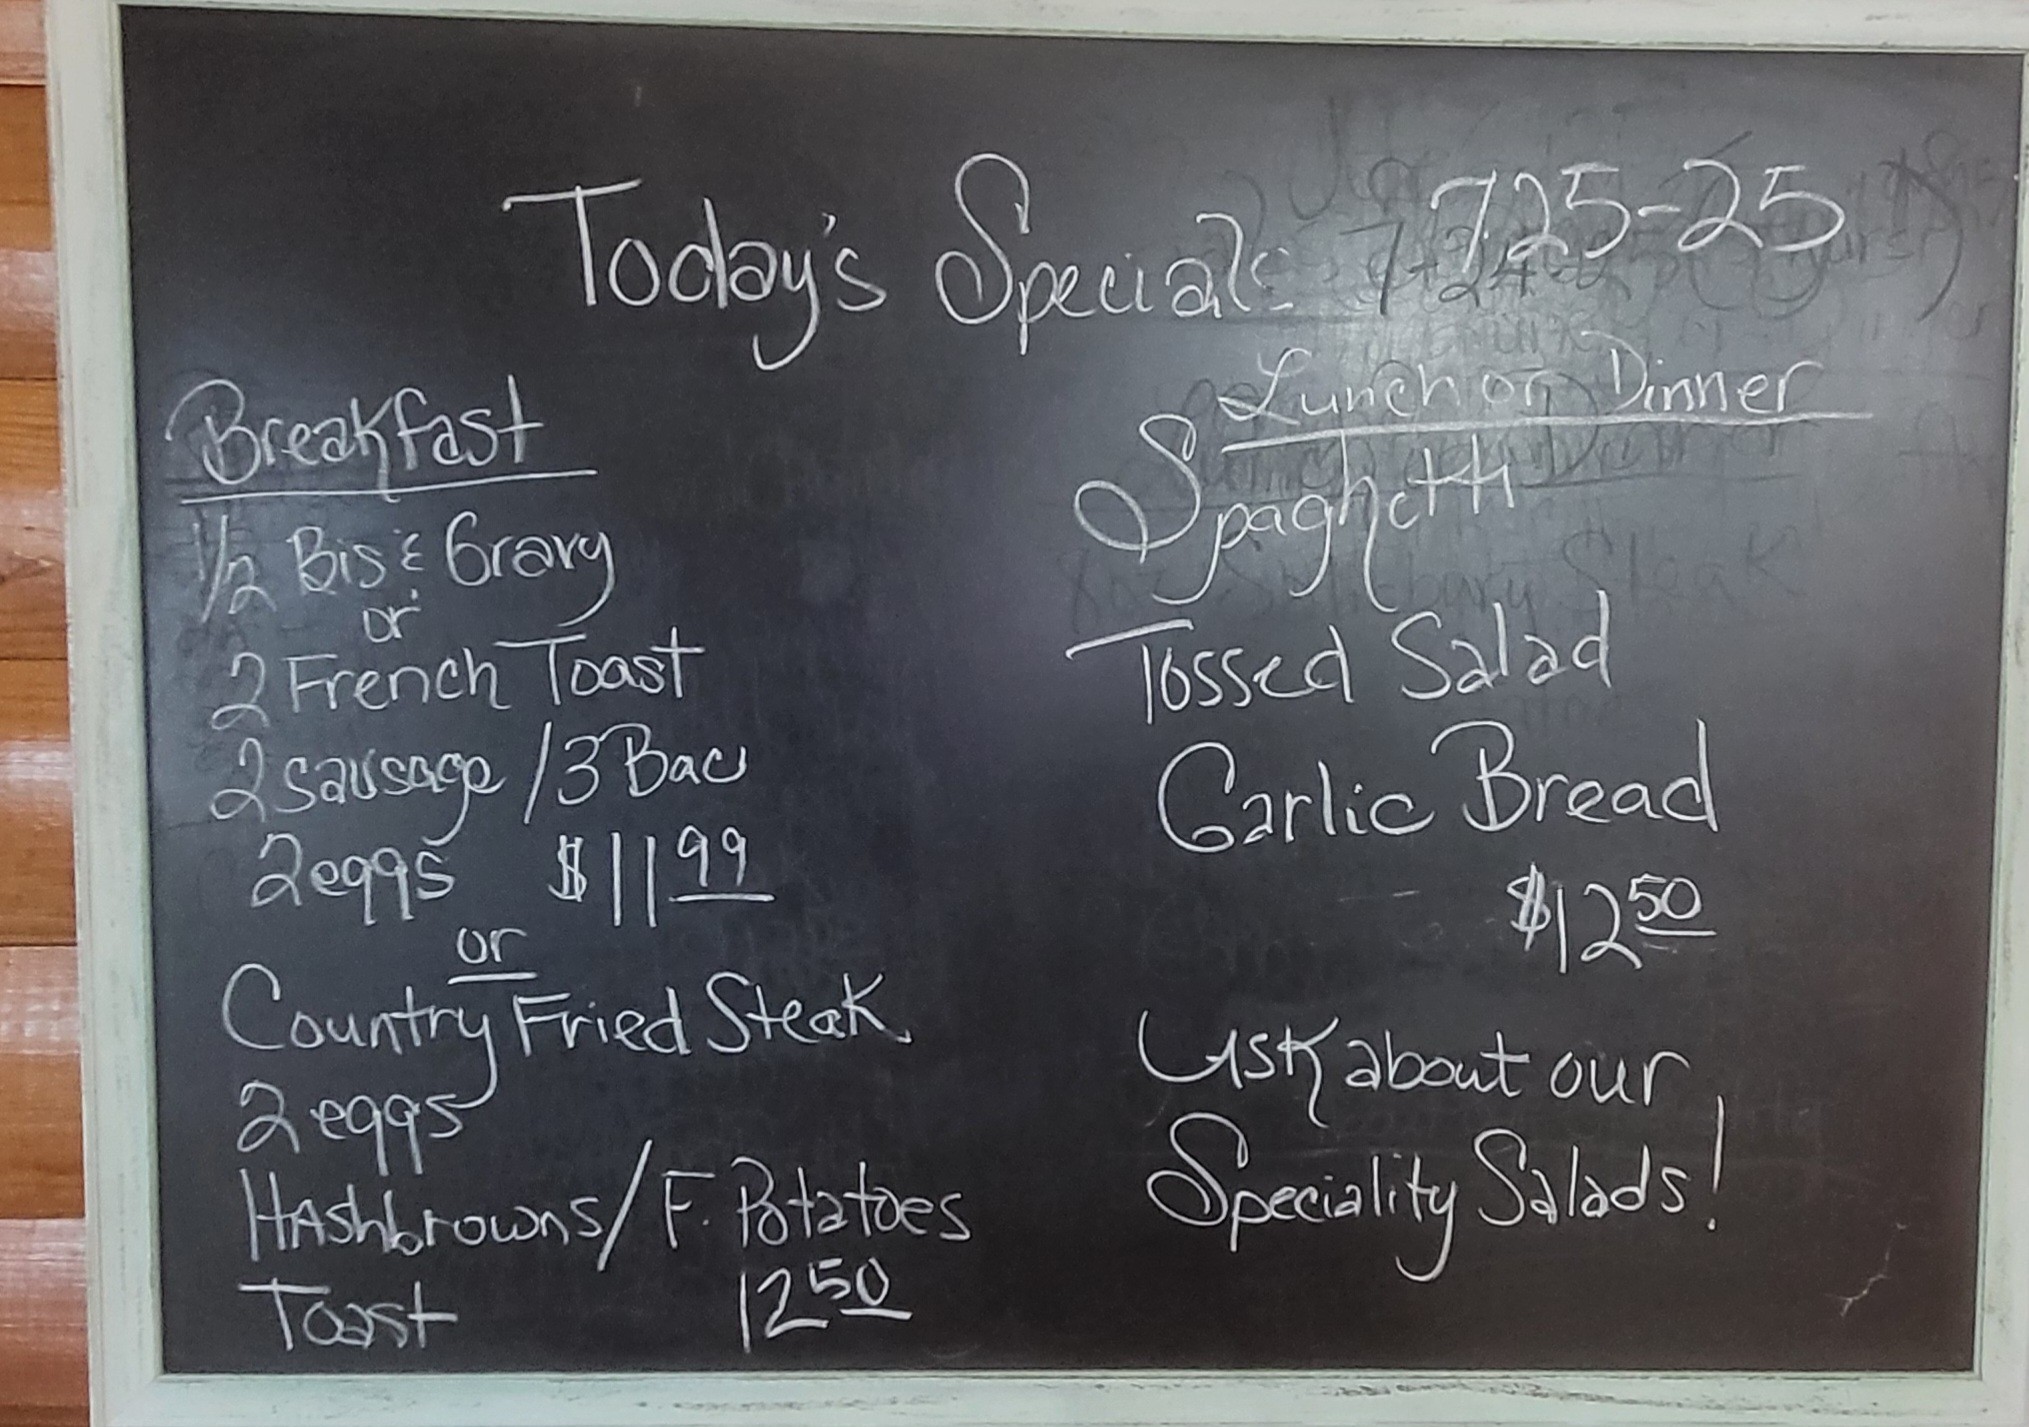 Today's Specials 7.25-25
Breakfast
1/2 Bis & Gravy
or
2 French Toast
2 sausage / 3 Bac
2 eggs $11 99
or
Country Fried Steak
2 eggs
Hashbrowns / F. Potatoes
Toast 12 50
Lunch or Dinner
Spaghetti
Tossed Salad
Garlic Bread
$12 50
Ask about our
Speciality Salads!